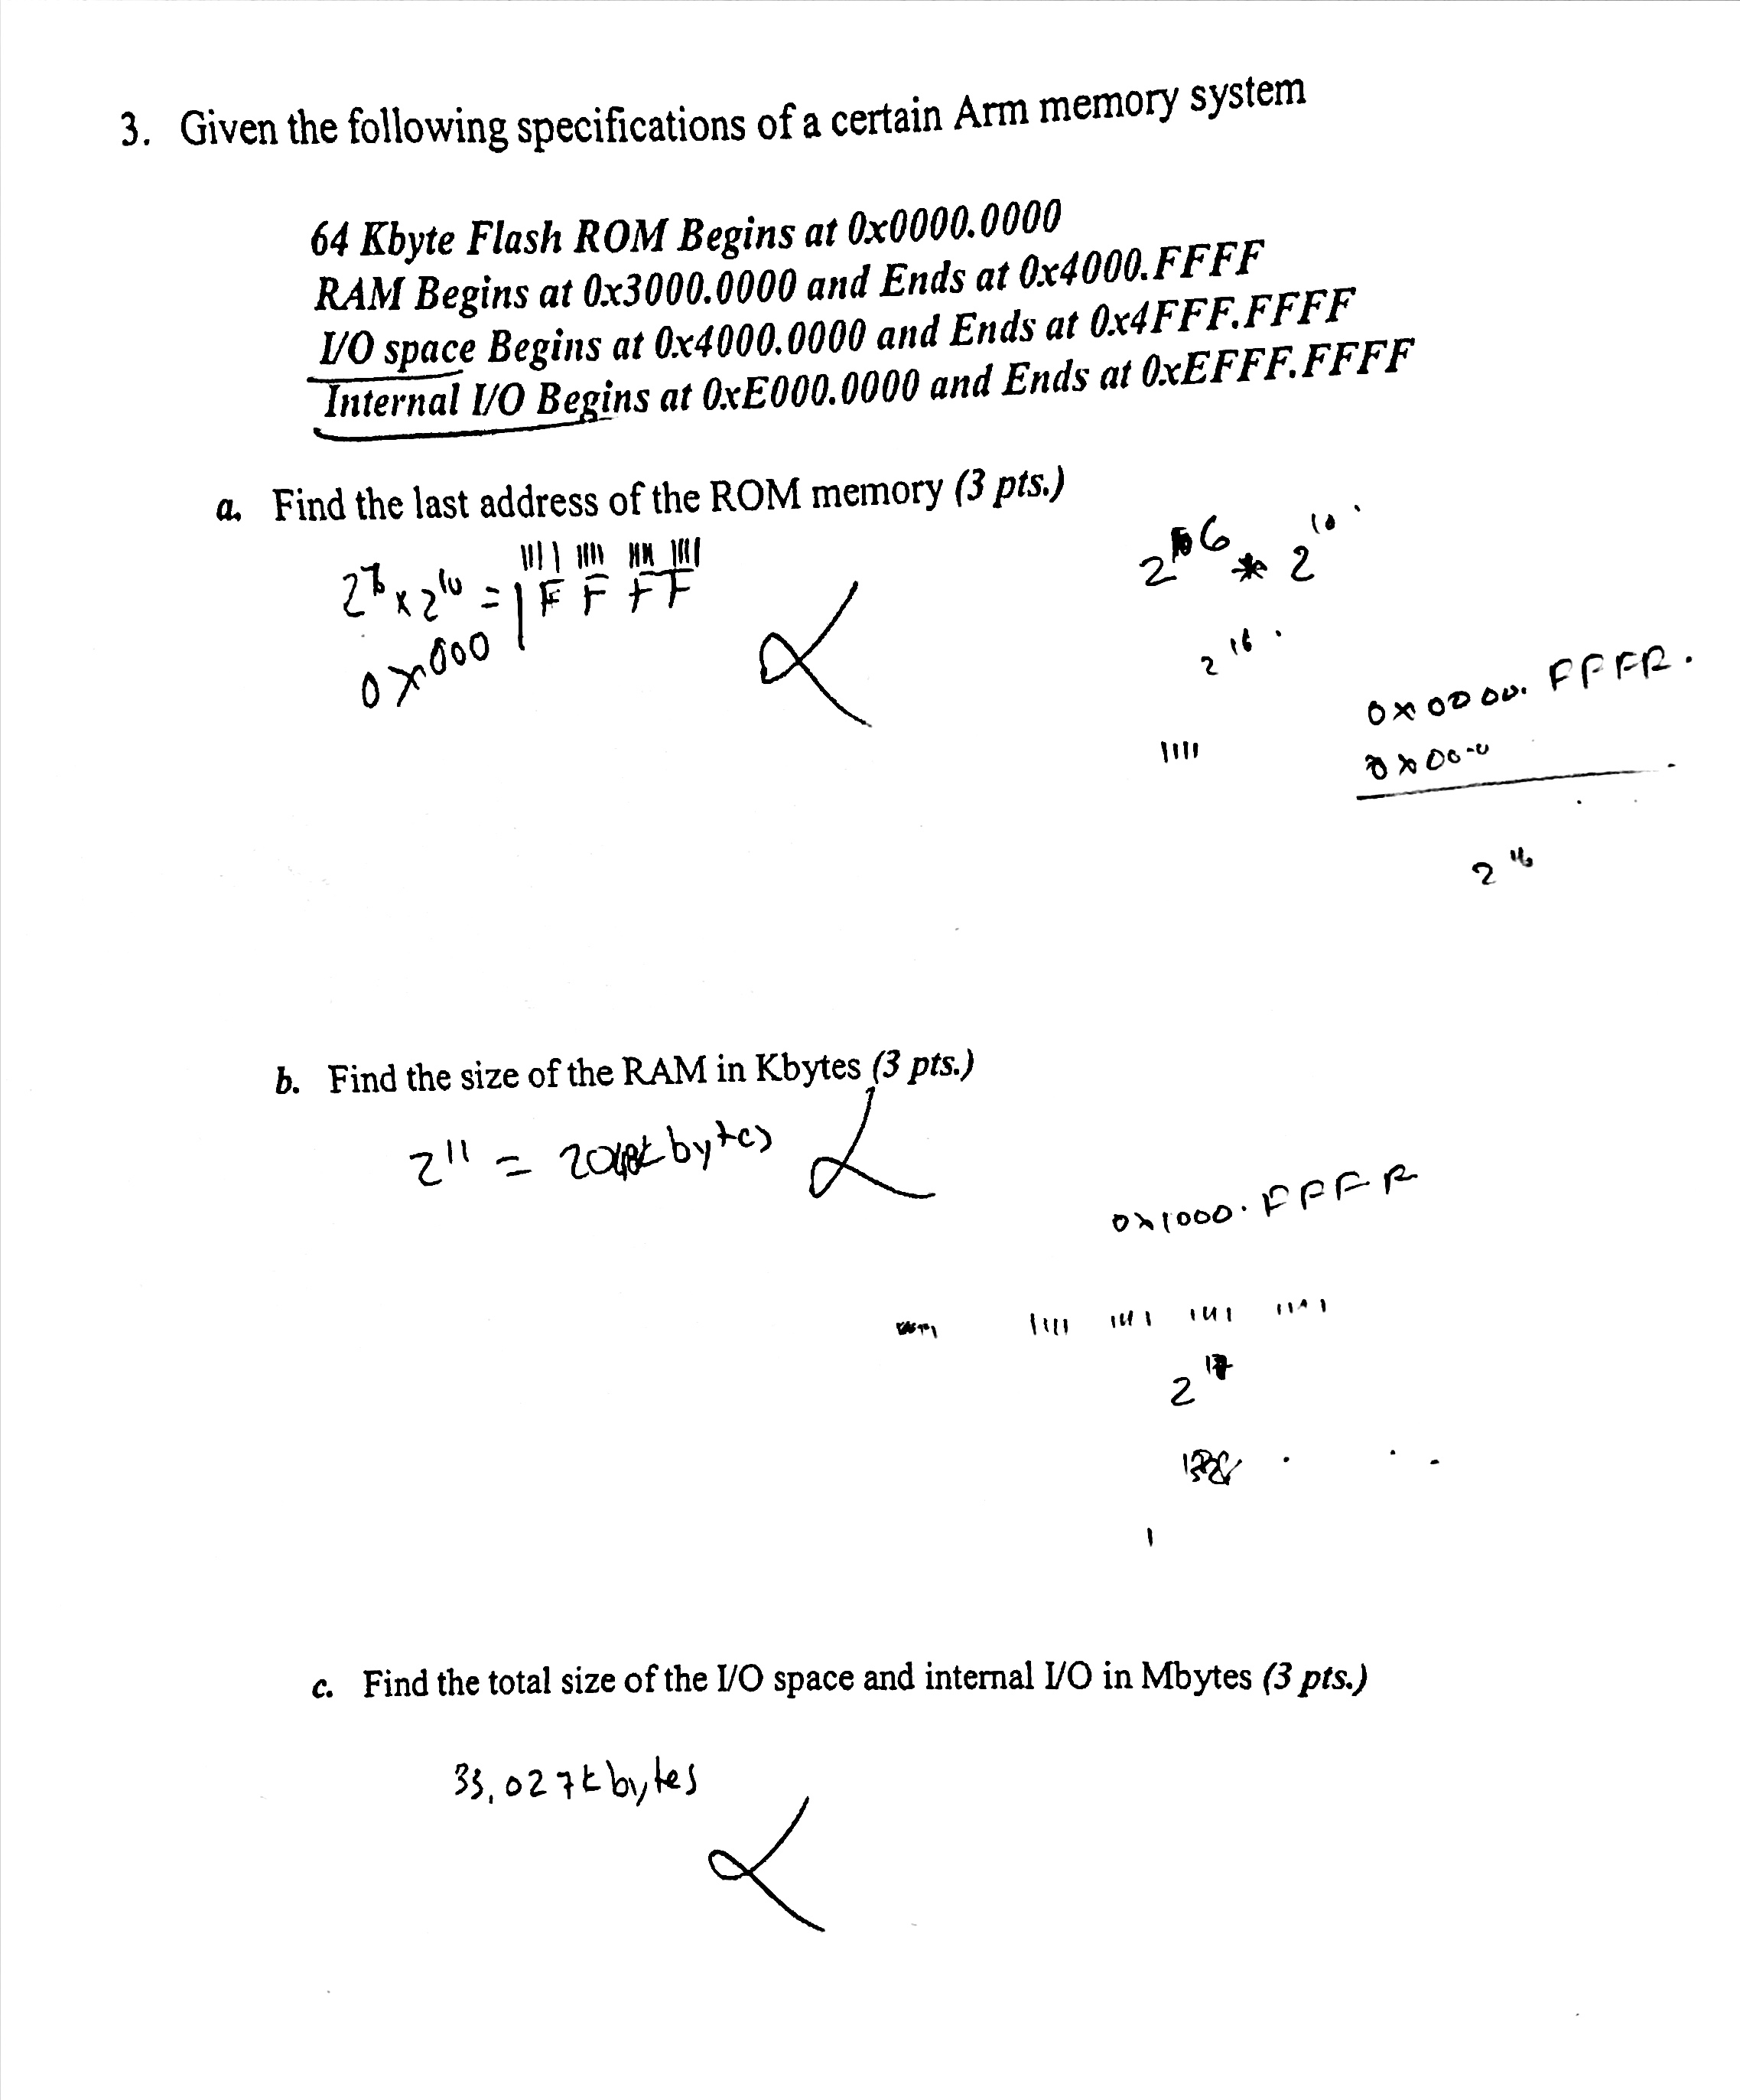 3. Given the following specifications of a certain Arm memory system
64 Kbyte Flash ROM Begins at 0x0000.0000
RAM Begins at 0x3000.0000 and Ends at 0x4000.FFFF
I/O space Begins at 0x4000.0000 and Ends at 0x4FFF.FFFF
Internal I/O Begins at 0xE000.0000 and Ends at 0xEFFF.FFFF
a. Find the last address of the ROM memory (3 pts.)
1111 1111 1111 1111
x 2^10 = 1 F F F F
0x000
6 * 2^10
2^16
0x0000. FFFF.
1111
2^16
b. Find the size of the RAM in Kbytes (3 pts.)
2^11 = 2048k bytes
0x1000. FFFF
1111 1111 1111 1111
2
1
c. Find the total size of the I/O space and internal I/O in Mbytes (3 pts.)
33,027k bytes